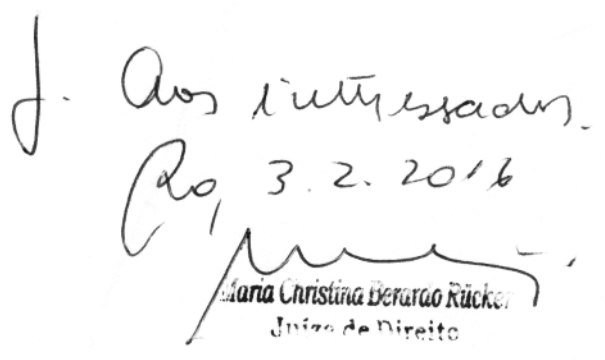 J. Aos interessados.
Rio, 3.2.2016
Maria Christina Berardo Rücker
Juíza de Direito